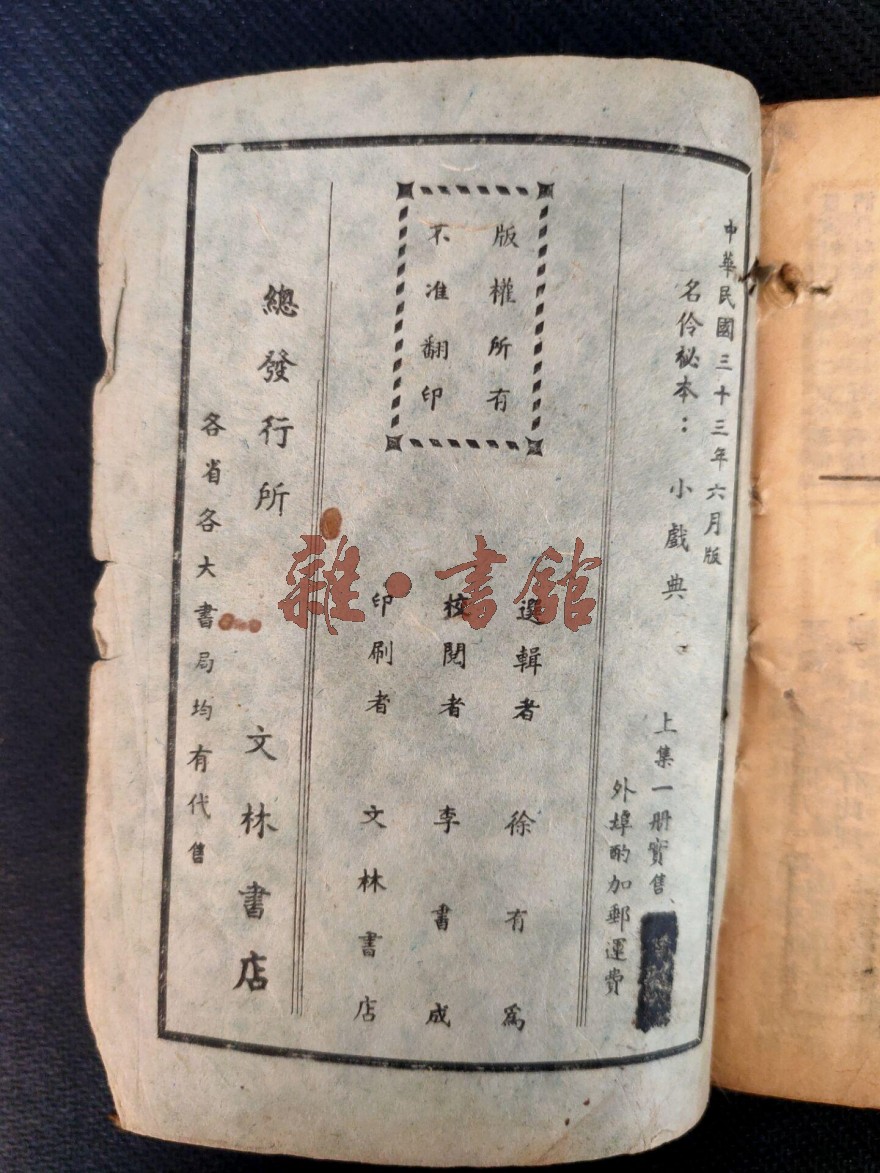 中華民國三十三年六月版
名伶秘本：小戲典
上集一册實售
外埠酌加郵運費
版權所有
不准翻印
選輯者 徐有爲
校閱者 李書成
印刷者 文林書店
總發行所 文林書店
各省各大書局均有代售
雜·書館